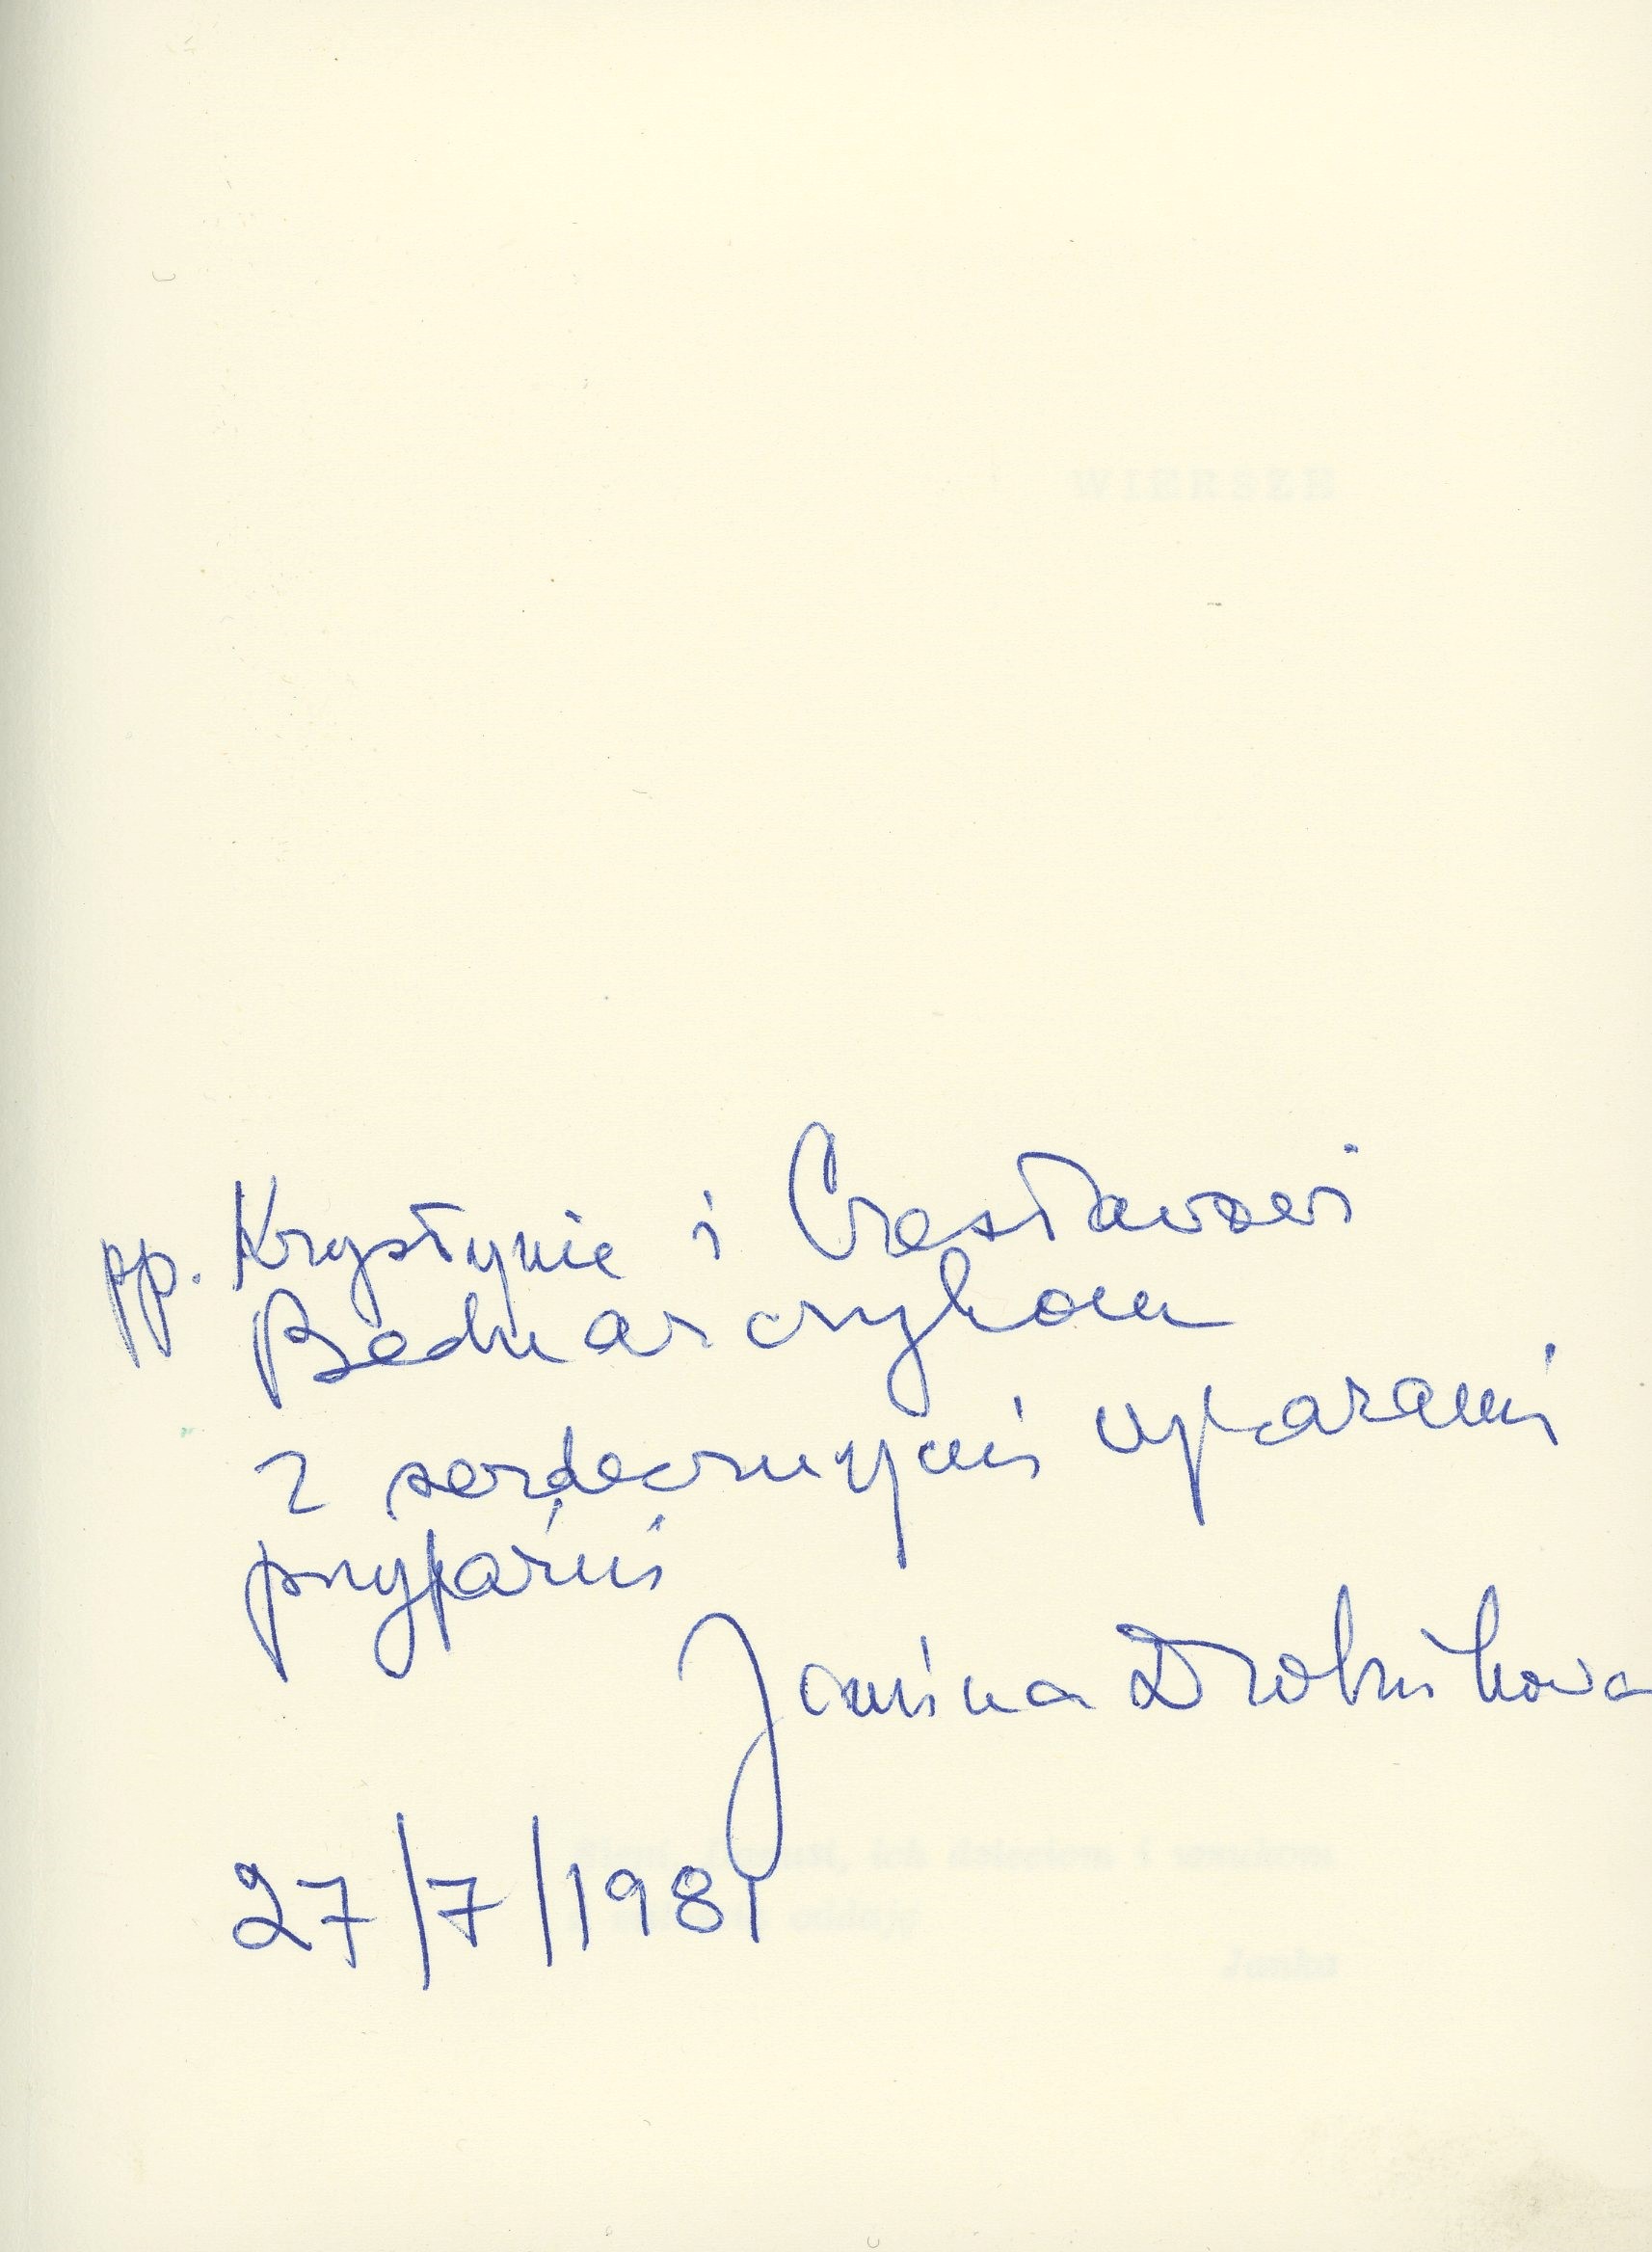 WIERSZE
pp. Krystynie i Czesławowi
Bednarczykom
z serdecznymi wyrazami
przyjaźni
Janina Drobnikowa
27/7/1981
ich dzieciom i wnukom
Janka